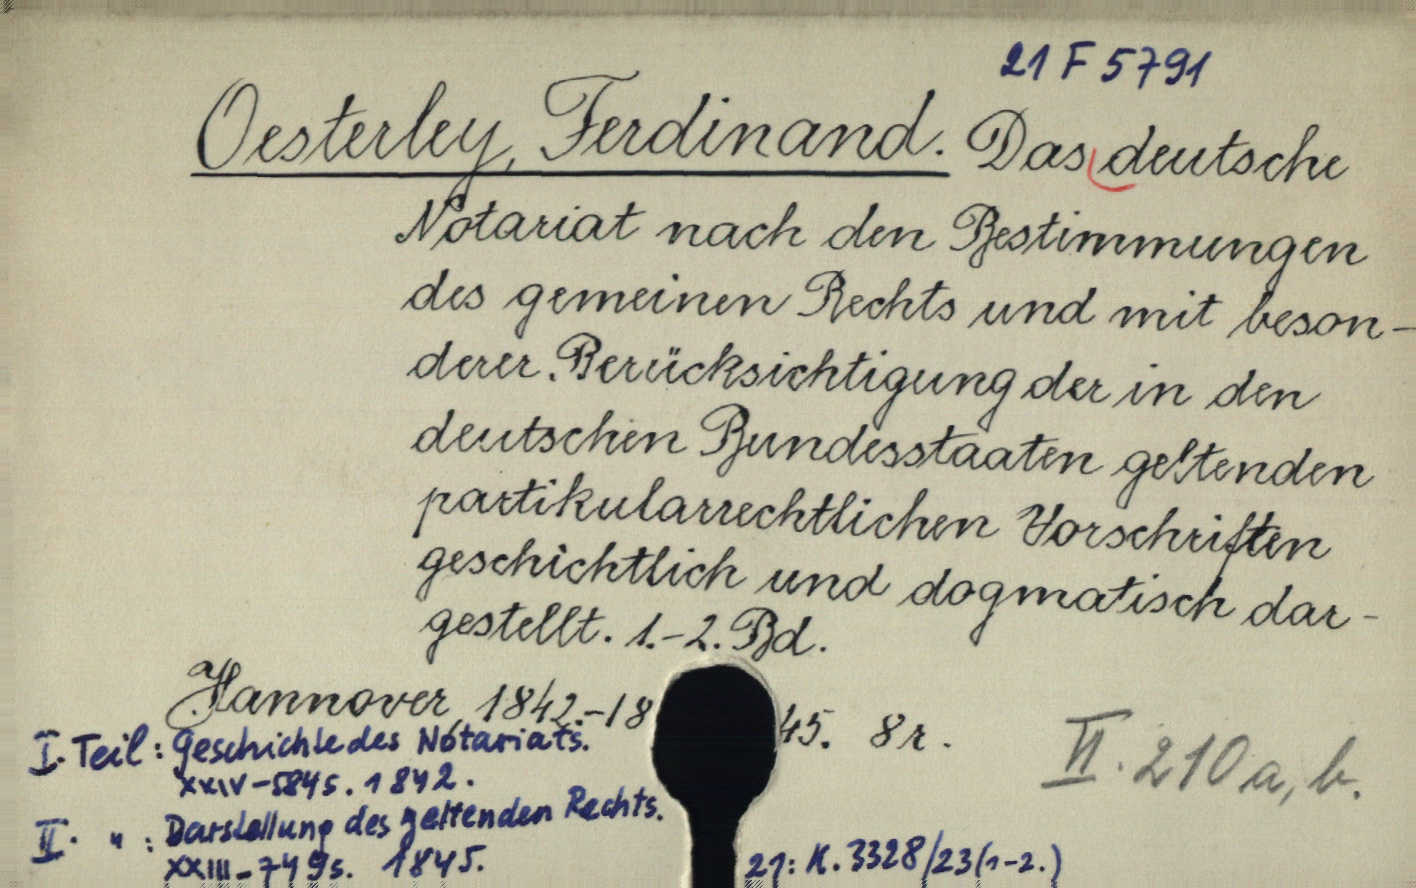 21 F 5791
Oesterley, Ferdinand. Das deutsche
Notariat nach den Bestimmungen
des gemeinen Rechts und mit beson-
derer Berücksichtigung der in den
deutschen Bundesstaaten geltenden
partikularrechtlichen Vorschriften
geschichtlich und dogmatisch dar-
gestellt. 1.-2. Bd.
Hannover 1842.-1845. 8r.
I. Teil: Geschichte des Notariats.
XXIV-584S. 1842.
II. 210a, b.
II. " : Darstellung des geltenden Rechts.
XXIII-749S. 1845.
21: K. 3328/23(1-2.)